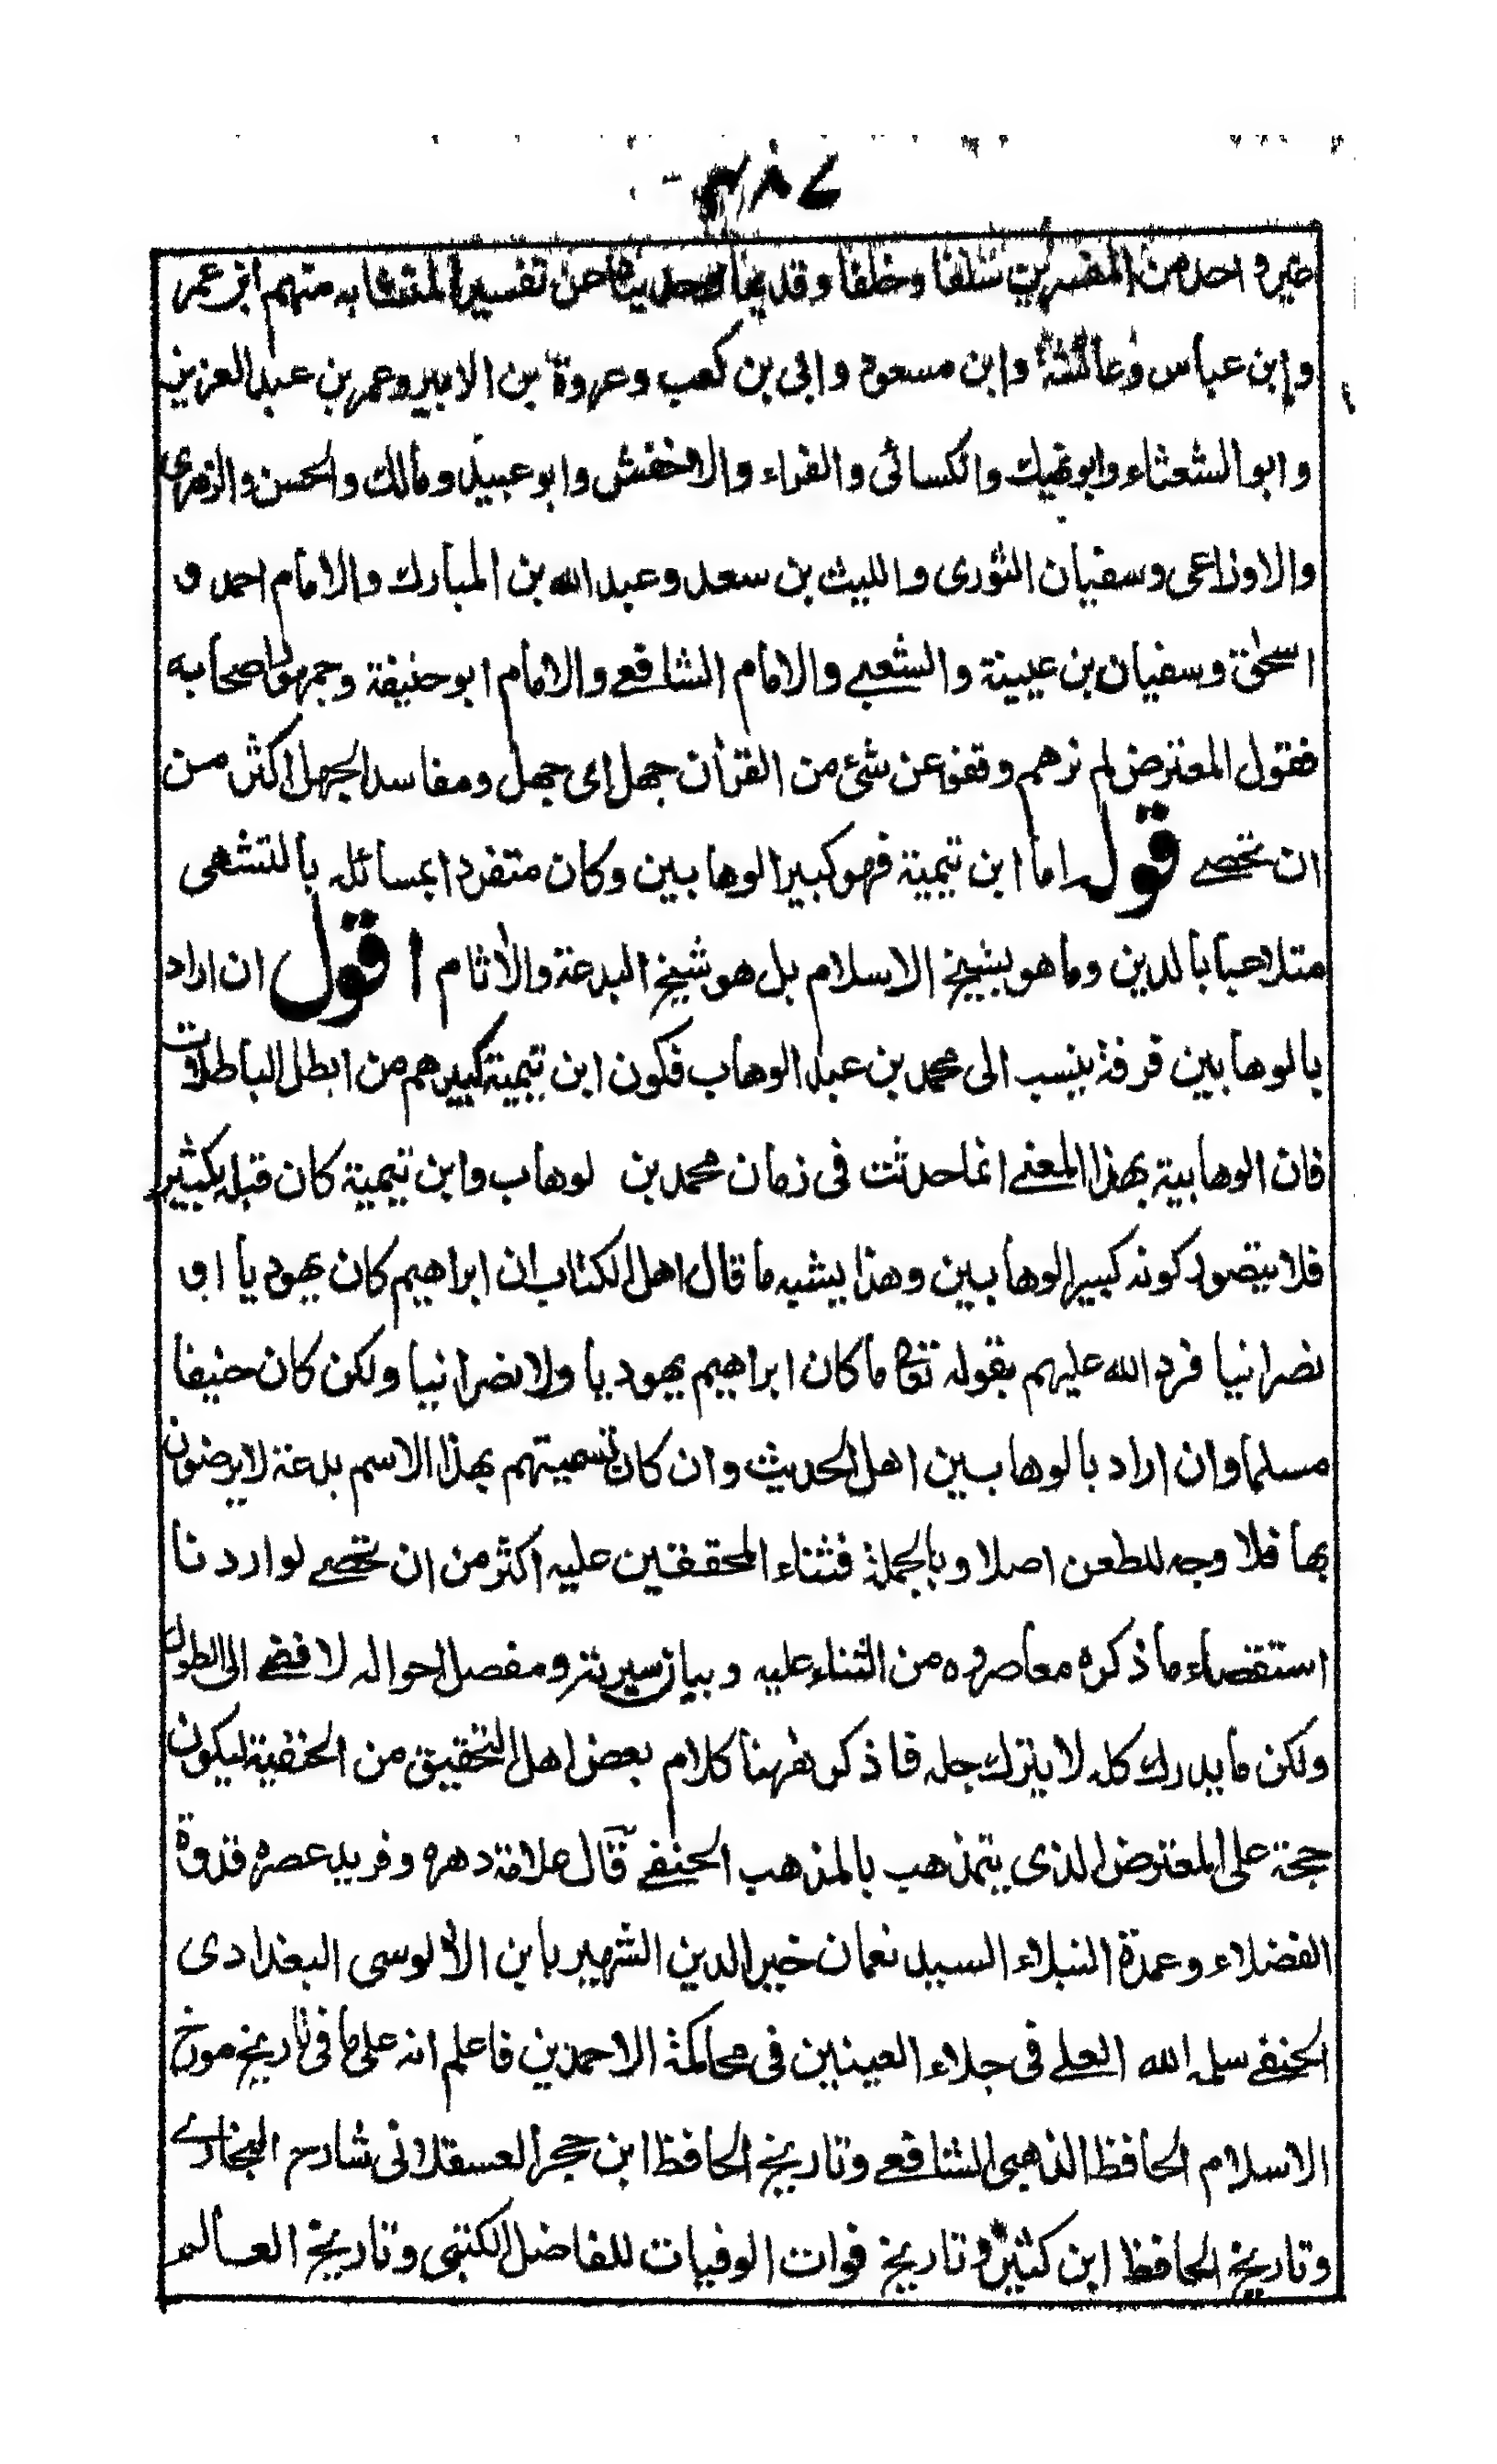 ٣٨٧
غير واحد من المفسرين سلفا وخلفا وقديما وحديثا عن تفسير المتشابه منهم ابن عمر
وابن عباس وعائشة وابن مسعود وابي بن كعب وعروة بن الزبير وعمر بن عبد العزيز
وابو الشعثاء وابو نهيك والكسائي والفراء والاخفش وابو عبيد ومالك والحسن والزهري
والاوزاعي وسفيان الثوري والليث بن سعد وعبد الله بن المبارك والامام احمد و
اسحٰق وسفيان بن عيينة والشعبي والامام الشافعي والامام ابو حنيفة وجمهور اصحابه
فقول المعترض لم نرهم وقفوا عن شئ من القرآن جهل اي جهل ومفاسد الجهل اكثر من
ان تحصى قوله اما ابن تيمية فهو كبير الوهابين وكان متفردا بمسائله بالتشهى
متلاعبا بالدين وما هو بشيخ الاسلام بل هو شيخ البدعة والآثام اقول ان اراد
بالوهابين فرقة ينسب الى محمد بن عبد الوهاب فكون ابن تيمية كبيرهم من ابطل الباطلات
فان الوهابية بهذا المعنى انما حدثت في زمان محمد بن لوهاب وابن تيمية كان قبله بكثير
فلا يتصور كونه كبير الوهابين وهذا يشبه ما قال اهل الكتاب ان ابراهيم كان يهوديا او
نصرانيا فرد الله عليهم بقوله تع ما كان ابراهيم يهوديا ولا نصرانيا ولكن كان حنيفا
مسلما وان اراد بالوهابين اهل الحديث وان كان تسميتهم بهذا الاسم بدعة لا يرضون
بها فلا وجه للطعن اصلا وبالجملة فثناء المحققين عليه اكثر من ان تحصى لو اردنا
استقصاء ما ذكره معاصروه من الثناء عليه وبيان سيرته ومفصل احواله لافضى الى الطول
ولكن ما يدرك كله لا يترك جله فاذكر ههنا كلام بعض اهل التحقيق من الحنفية ليكون
حجة على المعترض الذي يتمذهب بالمذهب الحنفي قال علامة دهره وفريد عصره قدوة
الفضلاء وعمدة النبلاء السيد نعمان خير الدين الشهير بابن الآلوسي البغدادي
الحنفي سلمه الله العلي في جلاء العينين في محاكمة الاحمدين فاعلم انه على ما في تاريخ مورخ
الاسلام الحافظ الذهبي الشافعي وتاريخ الحافظ ابن حجر العسقلاني شارح البخاري
وتاريخ الحافظ ابن كثير وتاريخ فوات الوفيات للفاضل الكتبي وتاريخ العالم